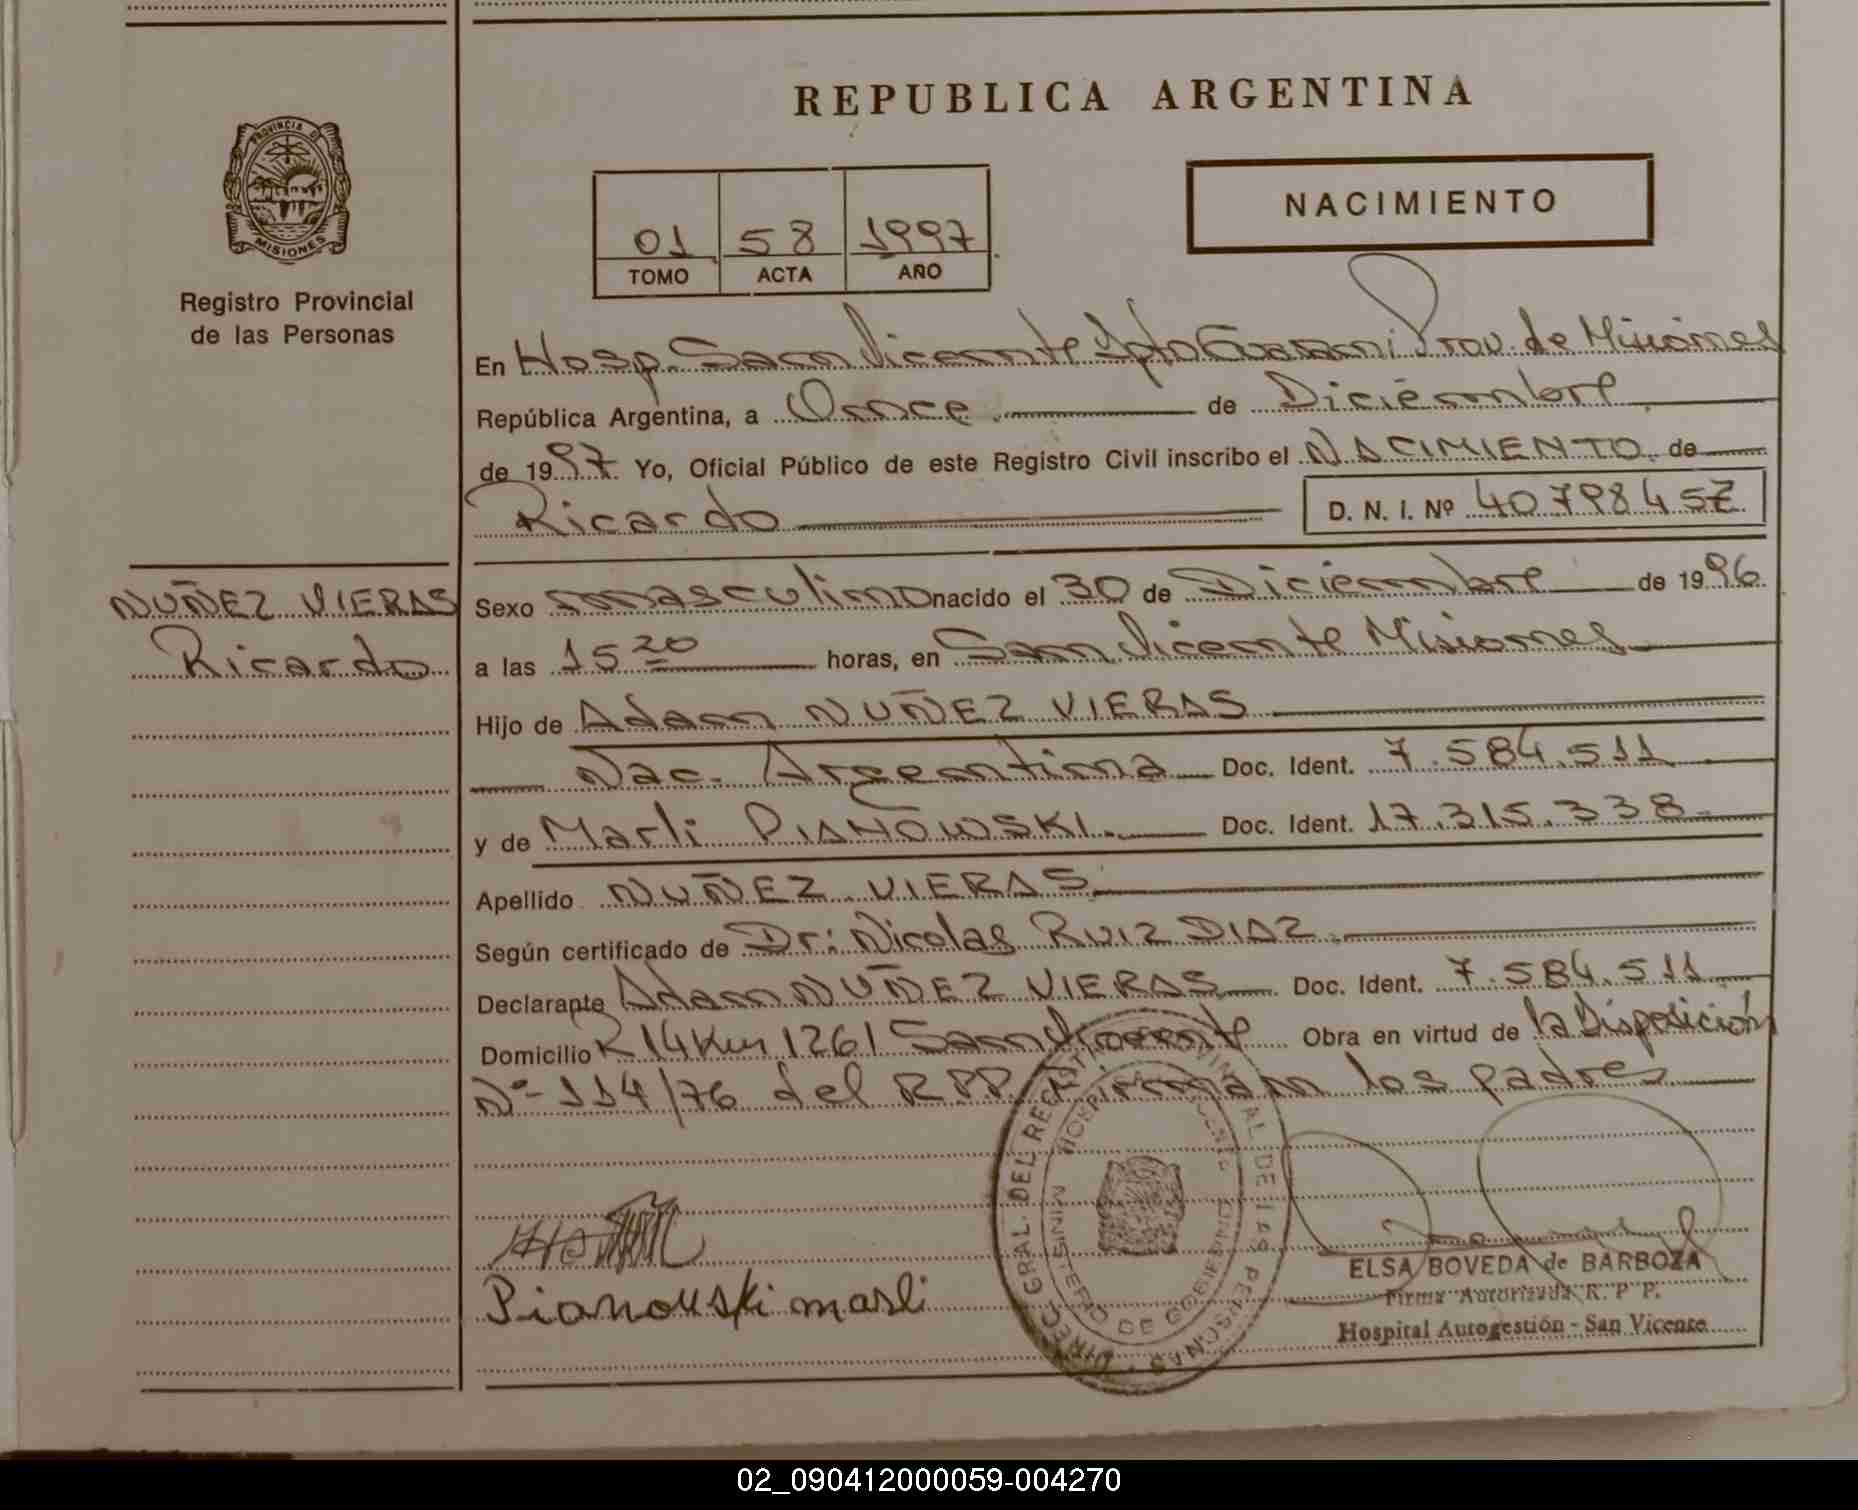 REPUBLICA ARGENTINA
PROVINCIA DE
MISIONES
Registro Provincial
de las Personas
01 58 1997
TOMO ACTA AÑO
NACIMIENTO
En Hosp. San Vicente Dpto Guarani Prov. de Misiones
República Argentina, a Once de Diciembre
de 1997 Yo, Oficial Público de este Registro Civil inscribo el NACIMIENTO de
Ricardo D. N. I. Nº 40798457
NUÑEZ VIERAS
Ricardo
Sexo masculino nacido el 30 de Diciembre de 1996
a las 15 20 horas, en San Vicente Misiones
Hijo de Adam NUÑEZ VIERAS
Nac. Argentina Doc. Ident. 7.584.511
y de Marli PIANOWSKI. Doc. Ident. 17.315.338
Apellido NUÑEZ VIERAS
Según certificado de Dr: Nicolas RUIZ DIAZ
Declarante Adam NUÑEZ VIERAS Doc. Ident. 7.584.511
Domicilio R 14 Km 1261 San Vicente Obra en virtud de la Disposición
Nº 114/76 del R.P.P. Firman los padres
DIREC. GRAL. DEL REGISTRO PROVINCIAL DE LAS PERSONAS
HOSPITAL SAN VICENTE
MINISTERIO DE GOBIERNO
Pianouski marli
ELSA BOVEDA de BARBOZA
Firma Autorizada R. P P.
Hospital Autogestión - San Vicente
02_090412000059-004270